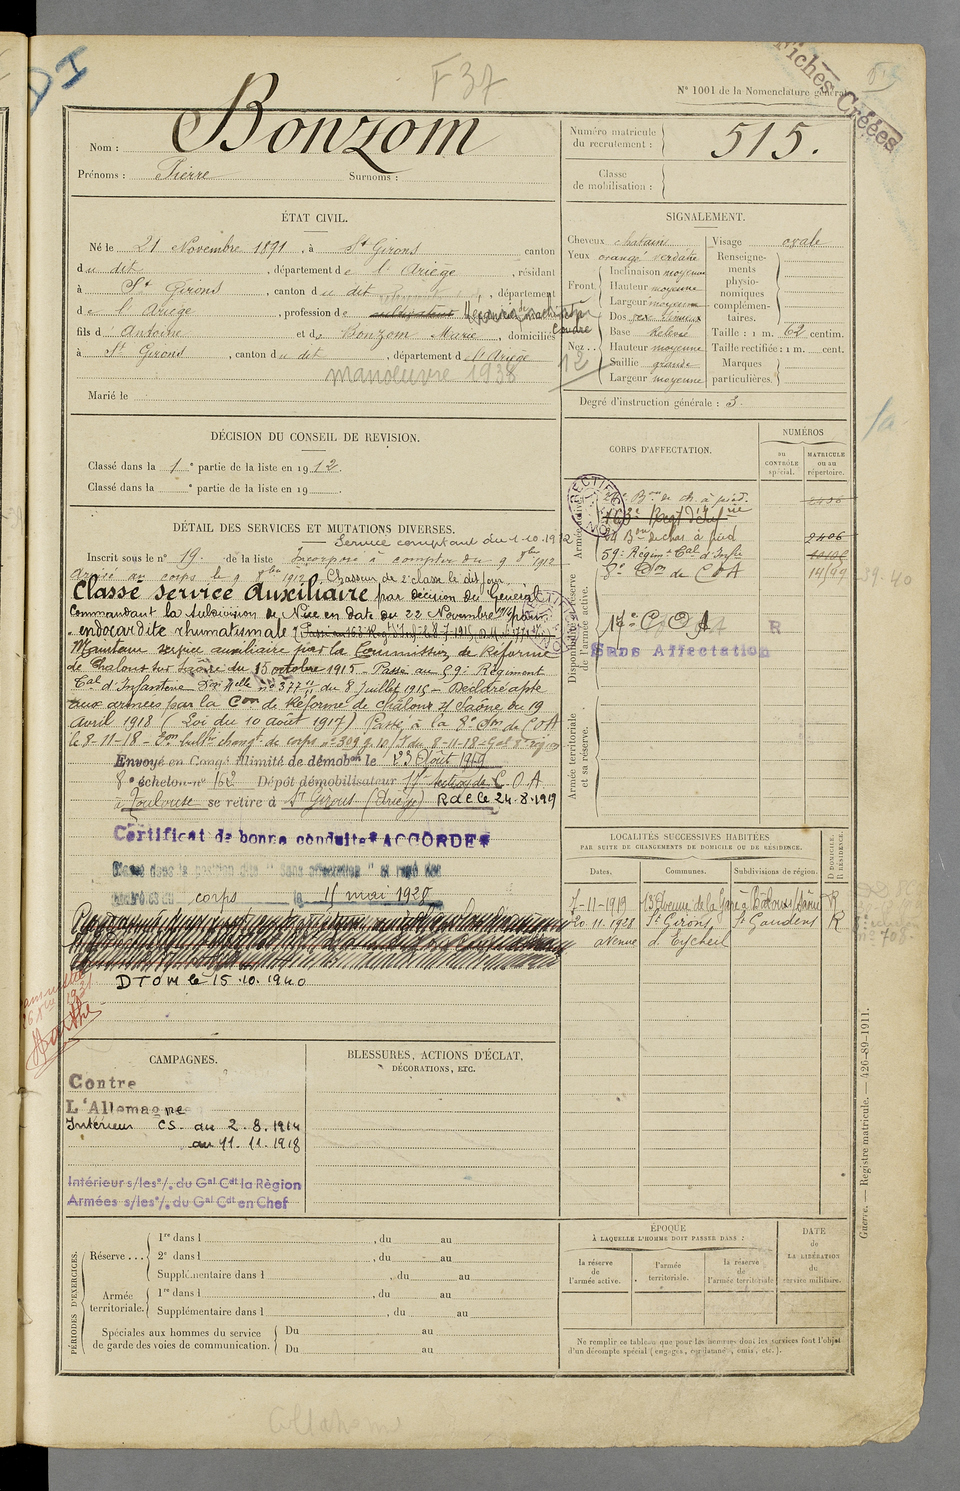 DI
F 37
Fiches Créées
N° 1001 de la Nomenclature générale
Nom : Bonzom
Prénoms : Pierre Surnoms :
Numéro matricule du recrutement : 515.
Classe de mobilisation :
ÉTAT CIVIL.
Né le 21 Novembre 1891, à St Girons canton
du dit, département de l'Ariège, résidant
à St Girons, canton du dit, département
de l'Ariège, profession de cultivateur
coudre
fils d'Antoine et de Bonzom Marie, domiciliés
à St Girons, canton du dit, département de l'Ariège
manoeuvre 1938
12
Marié le
SIGNALEMENT.
Cheveux chatain
Yeux orangé verdatre
Front. Inclinaison moyenne
Hauteur moyenne
Largeur moyenne
Nez.. Dos
Base Relevé
Hauteur moyenne
Saillie grande
Largeur moyenne
Visage ovale
Renseignements physionomiques complémentaires.
Taille : 1 m. 62 centim.
Taille rectifiée : 1 m. cent.
Marques particulières.
Degré d'instruction générale : 3
DÉCISION DU CONSEIL DE REVISION.
Classé dans la 1e partie de la liste en 1912.
Classé dans la e partie de la liste en 19
DÉTAIL DES SERVICES ET MUTATIONS DIVERSES.
Service comptant du 1-10-1912
Inscrit sous le n° 19. de la liste Incorporé à compter du 9 8bre 1912
Arrivé au corps le 9 8bre 1912. Chasseur de 2e classe le dit jour
Classé service auxiliaire par décision du Général
Commandant la Subdivision de Nice en date du 22 Novembre 1914 pour
endocardite rhumatismale
Maintenu service auxiliaire par la Commission de Réforme
de Chalons sur Saône du 15 octobre 1915 - Passé au 59e Régiment
Cal d'Infanterie Don Mlle n° 377 du 8 Juillet 1915 - Déclaré apte
aux armées par la Con de Réforme de Châlon s/ Saône du 19
Avril 1918 (Loi du 10 Août 1917) Passé à la 8e Son de C O A
le 8-11-18
Envoyé en Congé Illimité de démobon le 23 Août 1919
8e échelon n° 162 Dépôt démobilisateur 17e Section de C.O.A
à Toulouse se retire à St Girons (Ariège) R.d.C le 24.8.1919
Certificat de bonne conduite "ACCORDÉ"
Classé dans la position dite "Sans affectation" et rayé des
corps le 15 mai 1928
DTOM le 15.10.1940
CORPS D'AFFECTATION.
NUMÉROS
DU CONTRÔLE spécial.
MATRICULE ou au répertoire.
RECTIFIÉ
Armée active.
Bon de ch. à pied
163e Régt d'Infrie
Bon de chas. à pied 2406
59e Régim t Cal d'Infie
8e Son de C O A 14199
39-40
Disponibilité et réserve de l'armée active.
17e C O A R
Sans Affectation
Armée territoriale et sa réserve.
LOCALITÉS SUCCESSIVES HABITÉES
PAR SUITE DE CHANGEMENTS DE DOMICILE OU DE RÉSIDENCE.
Dates. Communes. Subdivisions de région. D. DOMICILE. R. RÉSIDENCE.
7-11-1919 13 Avenue de la Gare R
20.11.1928 St Girons St Gaudens R
avenue d'Eycheil
CAMPAGNES.
Contre
L'Allemagne
Intérieur CS du 2.8.1914
au 11.11.1918
Intérieur s/les o/. du Gal Cdt la Région
Armées s/les o/. du Gal Cdt en Chef
BLESSURES, ACTIONS D'ÉCLAT,
DÉCORATIONS, ETC.
PÉRIODES D'EXERCICES.
Réserve ... 1re dans l , du au
2e dans l , du au
Supplémentaire dans l , du au
Armée territoriale. 1re dans l , du au
Supplémentaire dans l , du au
Spéciales aux hommes du service de garde des voies de communication. Du au
Du au
ÉPOQUE
À LAQUELLE L'HOMME DOIT PASSER DANS :
la réserve de l'armée active.
l'armée territoriale.
la réserve de l'armée territoriale
DATE de LA LIBÉRATION du service militaire.
Ne remplir ce tableau que pour les hommes dont les services font l'objet
d'un décompte spécial (engagés, omis, etc.).
Guerre. — Registre matricule. — 426-89-1911.